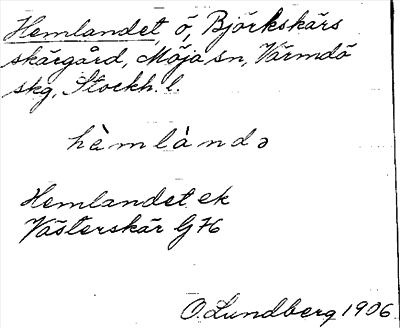 Hemlandet, ö, Björkskärs
skärgård, Möja sn, Värmdö
skg, Stockh. l.
hèmlàndə
Hemlandet ek
Västerskär GK
O. Lundberg 1906